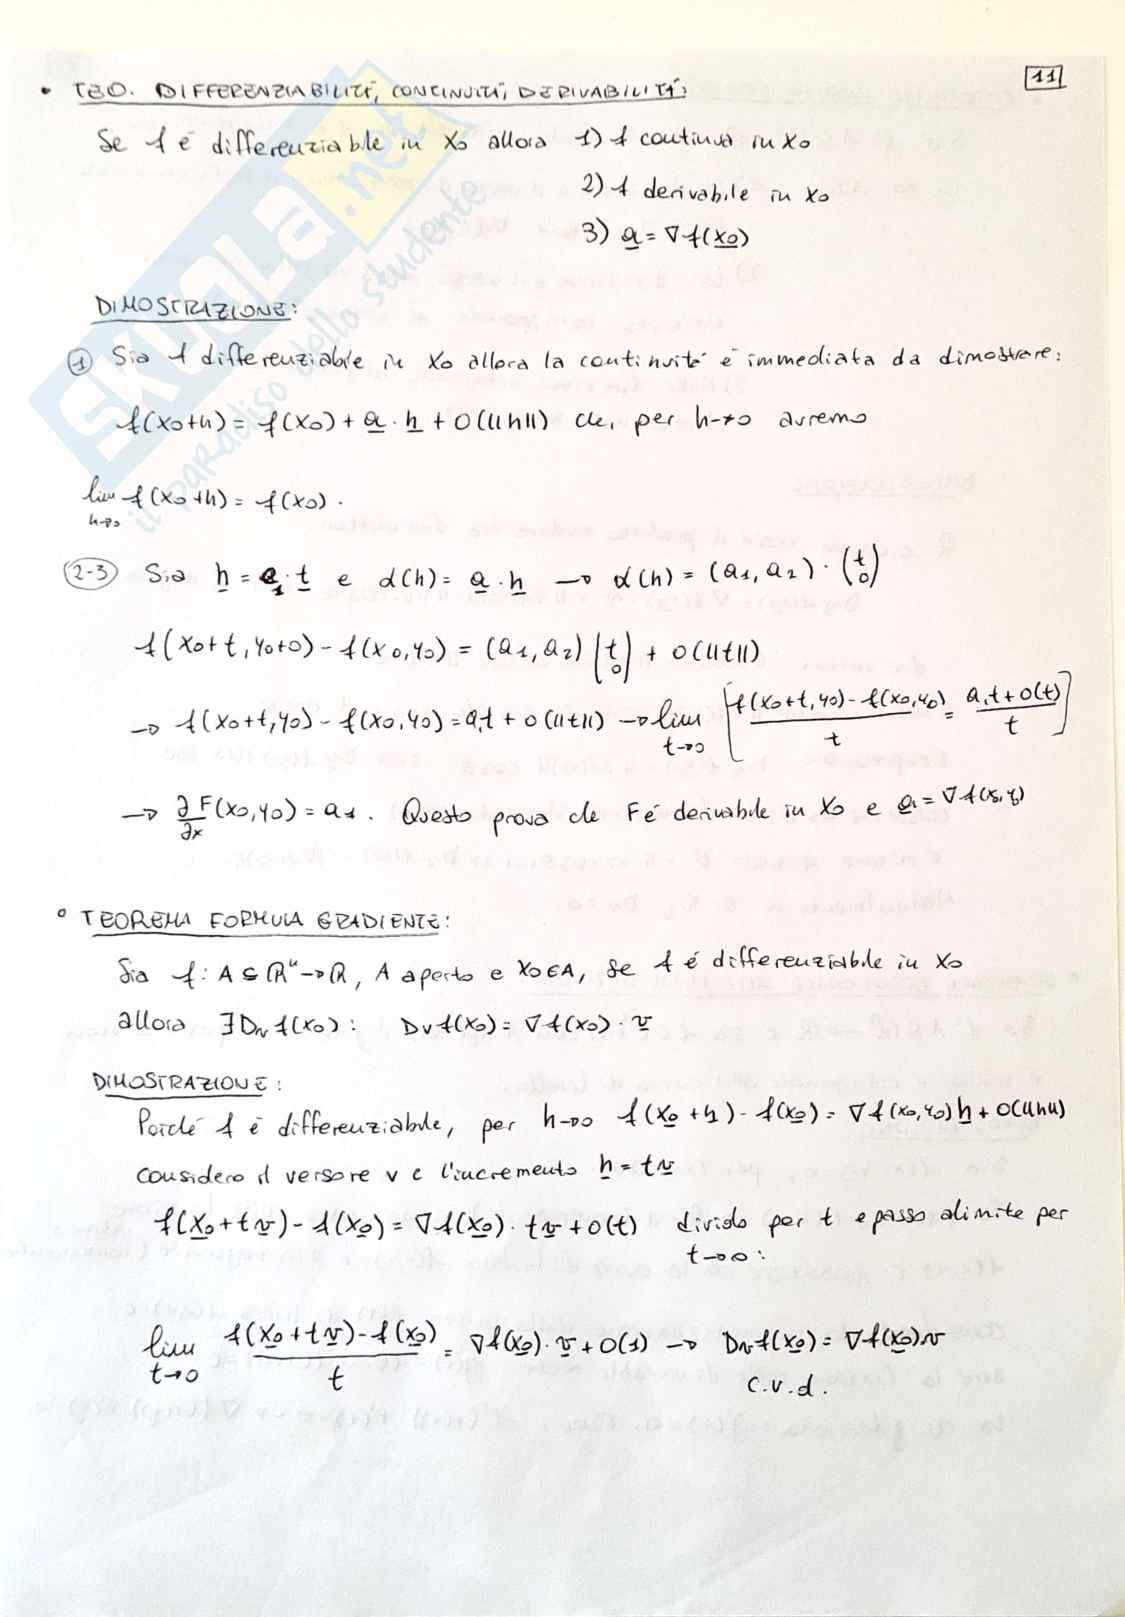 11
• TEO. DIFFERENZIABILITÀ, CONTINUITÀ, DERIVABILITÀ:
Se f è differenziabile in x₀ allora 1) f continua in x₀
2) f derivabile in x₀
3) a = ∇f(x₀)
DIMOSTRAZIONE:
① Sia f differenziabile in x₀ allora la continuità è immediata da dimostrare:
f(x₀+h) = f(x₀) + a · h + o(||h||) che, per h→0 avremo
lim f(x₀+h) = f(x₀).
h→0
(2-3) Sia h = e₁ · t e α(h) = a · h → α(h) = (a₁, a₂) · (t 0)
f(x₀+t, y₀+0) - f(x₀, y₀) = (a₁, a₂) [t 0] + o(||t||)
→ f(x₀+t, y₀) - f(x₀, y₀) = a₁t + o(||t||) → lim t→0 [ (f(x₀+t, y₀) - f(x₀, y₀))/t = (a₁t + o(t))/t ]
→ ∂F/∂x (x₀, y₀) = a₁. Questo prova che F è derivabile in x₀ e a₁ = ∇f(x,y)
° TEOREMA FORMULA GRADIENTE:
Sia f: A ⊆ ℝⁿ → ℝ, A aperto e x₀ ∈ A, se f è differenziabile in x₀
allora ∃ Dᵥf(x₀): Dᵥf(x₀) = ∇f(x₀) · v
DIMOSTRAZIONE:
Poiché f è differenziabile, per h→0 f(x₀+h) - f(x₀) = ∇f(x₀,y₀)h + o(||h||)
considero il versore v e l'incremento h = tv
f(x₀+tv) - f(x₀) = ∇f(x₀) · tv + o(t) divido per t e passo al limite per
t→0:
lim t→0 (f(x₀+tv) - f(x₀))/t = ∇f(x₀) · v + o(1) → Dᵥf(x₀) = ∇f(x₀)v
c.v.d.
SKUOLA.net
il paradiso dello studente